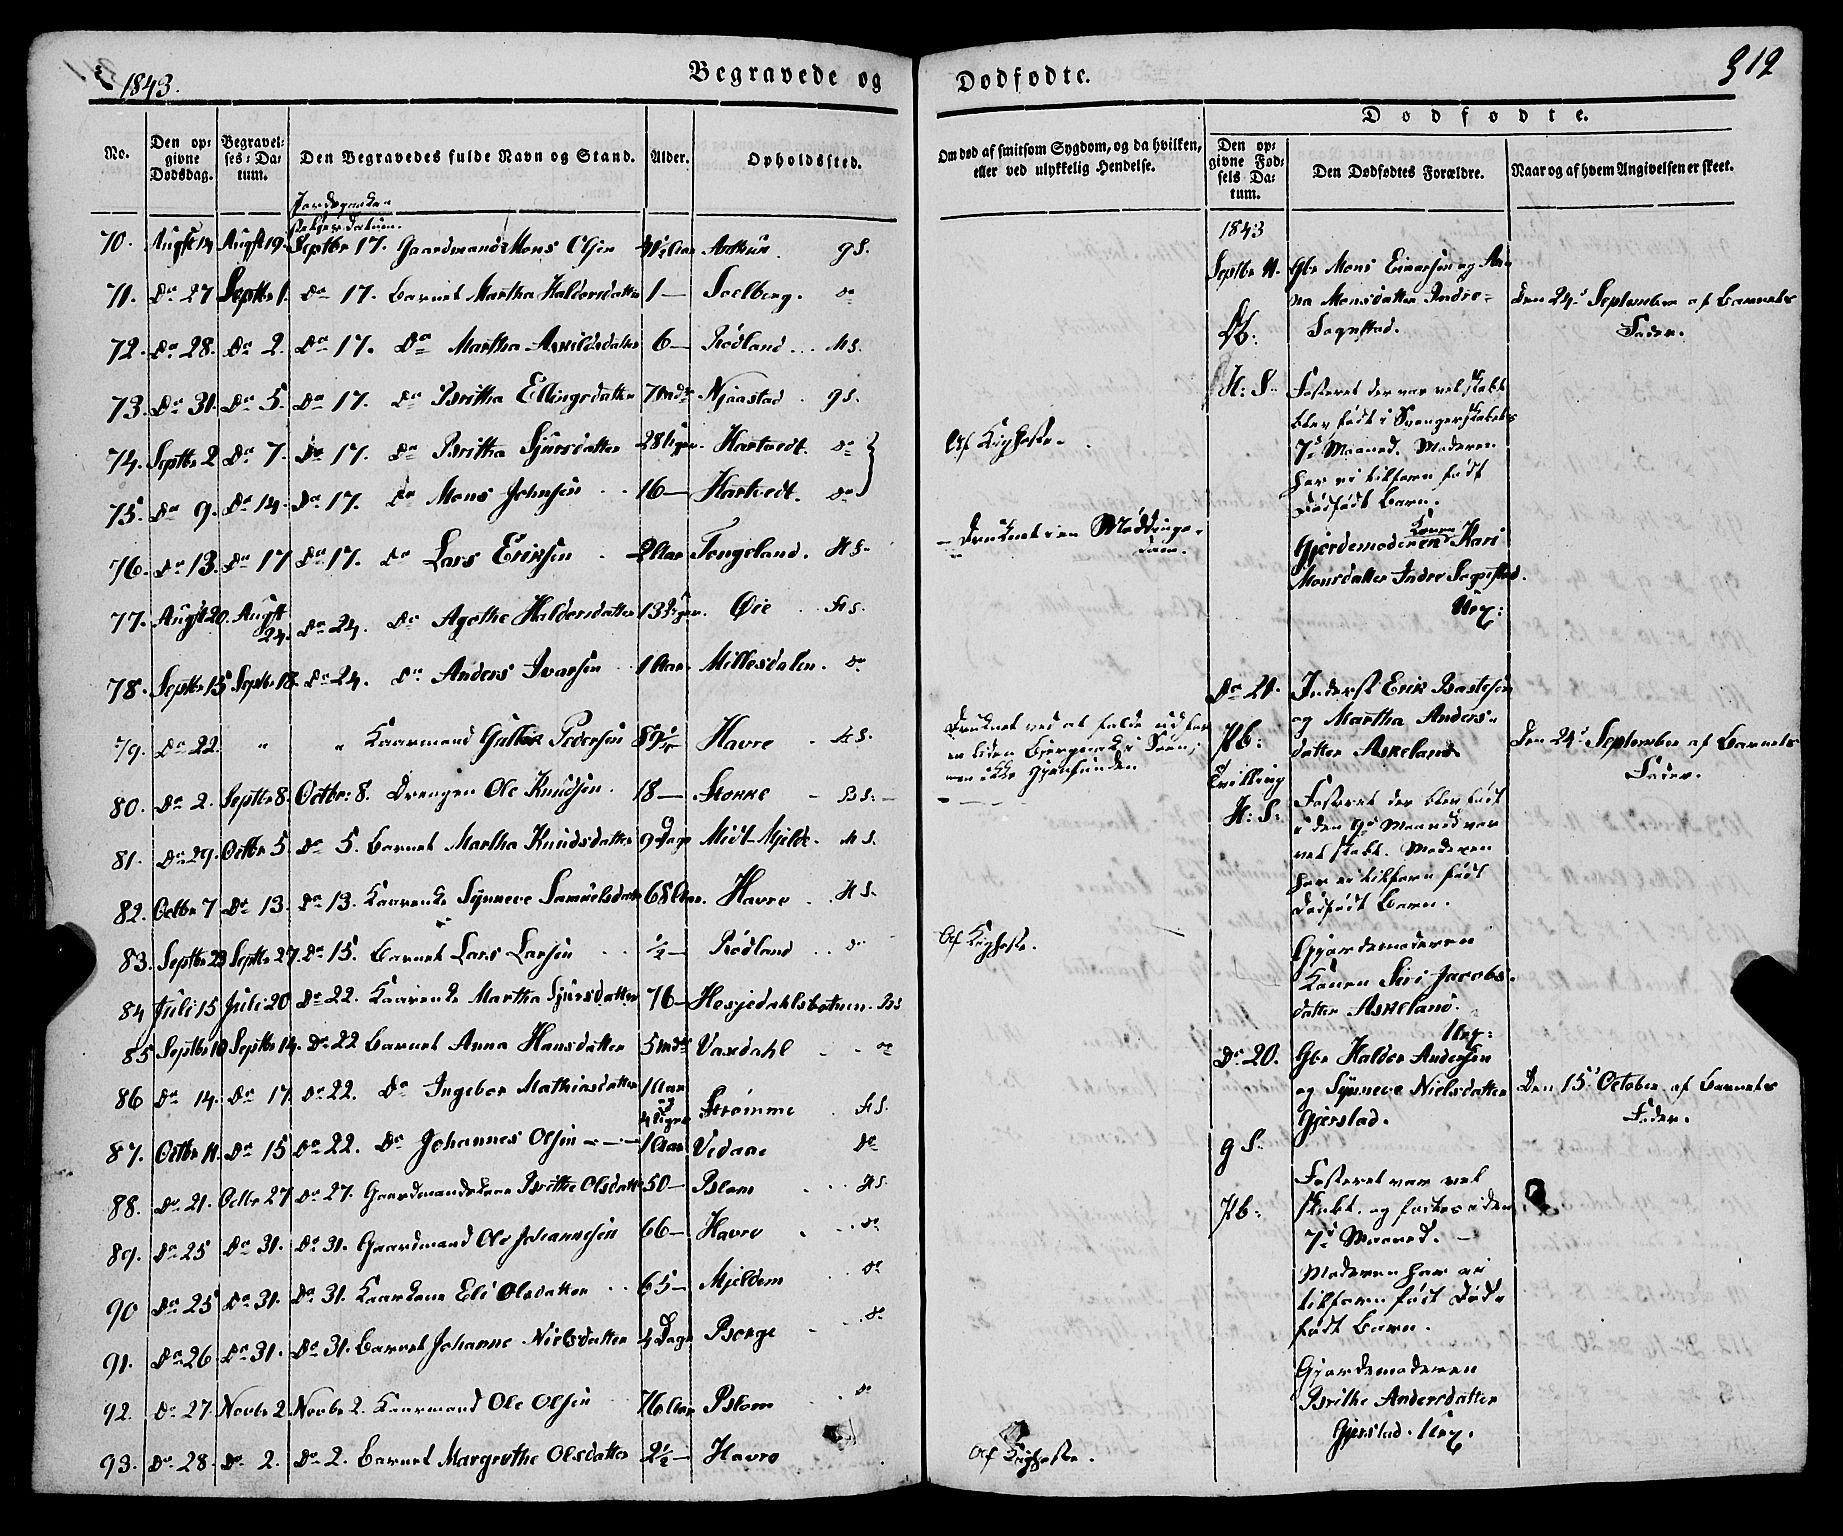 1843.
Begravede og
Dødfødte.
312
No.
Den op-
givne
Dødsdag.
Begravel-
ses-Da-
tum.
Den Begravedes fulde Navn og Stand.
Alder.
Opholdssted.
Om død af smitsom Sygdom, og da hvilken,
eller ved ulykkelig Hendelse.
Dødfødte.
Den op-
givne Fød-
sels Da-
tum.
Den Dødfødtes Forældre.
Naar og af hvem Angivelsen er skeet.
Jordspaakas-
telses Datum.
70. Augst 14 Augst 19. Septbr 17. Gaardmand Mons Olsen Aar gS.
71. Do 27 Septbr 1. Do 17. Barnet Martha Haldorsdatter 1 — Soelberg. Do
72. Do 28. Do 2. Do 17. Do Martha Askildsdatter 6 — Rødland .. MS.
73. Do 31. Do 5. Do 17. Do Britha Ellingsdatter 7 Mdr Njaastad . gS.
74. Septbr 2 Do 7. Do 17. Do Britha Sjursdatter 28 Uger. Hartvedt. Do
75. Do 9. Do 14. Do 17. Do Mons Johnsen .. 16 — Hartvedt. Do
76. Do 13. Do 17 Do 17. Do Lars Eriksen . 2 Aar Tengeland. HS.
77. Augst 20. Augst 24. Do 24. Do Agathe Haldorsdatter 13 Uger. Øie . HS.
78. Septbr 15 Septbr 18. Do 24. Do Anders Ivarsen .. 1 Aar Millesdalen. Do
79. Do 22. " " Kaarmand Pedersen Havre . HS.
80. Do 2. Septbr 8. Octbr: 8. Drengen Ole Knudsen . 18 — Stokke — BS: —
81. Do 29. Octbr 5. Do 5. Barnet Martha Knudsdatter 9 Dage Midt-Mjelde. MS.
82. Octbr 7 Do 13. Do 13. Kaarenke Synneve Samuelsdatter 68 Aar. Havre . HS.
83. Septbr 23 Septbr 27. Do 15. Barnet Lars Larsen .. ½ — Rødland .. Do
84 Juli 15 Juli 20 Do 22. Kaarenke Martha Sjursdatter 76 — Hesjedahlsbotnen. BS
85 Septbr 10 Septbr 14. Do 22 Barnet Anna Hansdatter 5 Mdr Vaxdahl . . Do
86 Do 14. Do 17. Do 22. Do Ingebor Mathiasdatter 1 Aar og 4 Uger Strømme . HS.
87. Octbr 11. Do 15 Do 22. Do Johannes Olsen — — — 1 Aar Vedaae Do
88. Do 21. Octbr 27 Do 27. Gaardmandskone Britha Olsdatter 50 — Blom ... HS.
89. Do 25 Do 31. Do 31. Gaardmand Ole Johannesen 66 — Havre . .. Do
90 Do 25 Do 31. Do 31. Kaarkone Eli Olsdatter .. 65 — Mjeldem .. Do
91. Do 26 Do 31. Do 31. Barnet Johanne Nielsdatter 4 Dage Borge . .. Do
92. Do 27. Novbr 2. Novbr 2. Kaarmand Ole Olsen 76 Aar Blom . Do
93. Do 28. Do 2. Do 2. Barnet Margrethe Olsdatter 2½ — Havre
Af Kighoste.
— Druknet i en
dam.
Druknet ved at falde ud for
en liden i Søen;
men ikke gjenfunden
Af Kighoste.
Af Kighoste.
1843
Septbr 11.
H: S.
Gbr Mons Einarsen og An-
na Monsdatter Indre-
Sognstad.
Fosteret der var vel skabt
blev født i Svangerskabets
7de Maaned. Moderen
har ei tilforn født
dødfødt Barn.
Gjordemoderen Konen Kari
Monsdatter Indre Sognstad.
Den 24de September af Barnets
Fader.
Do 21.
Pb:
Tvilling
H: S:
Inderst Erik Bastesen
og Martha Anders-
datter Askeland
Fosteret der blev født
i den 9de Maaned var
vel skabt. Moderen
har ei tilforn født
dødfødt Barn.
Gjordemoderen
Konen Siri Jacobs-
datter Askeland.
Den 24de September af Barnets
Fader.
Do 20.
g S.
Pb:
Gbr Haldor Andersen
og Synneve Nielsdatter
Gjerstad.
Fosteret var vel
skabt. og fødtes i den
7de Maaned. —
Moderen har ei
tilforn født død-
født Barn.
Gjordemoderen
Brithe Andersdatter
Gjerstad.
Den 15de October af Barnets
Fader.